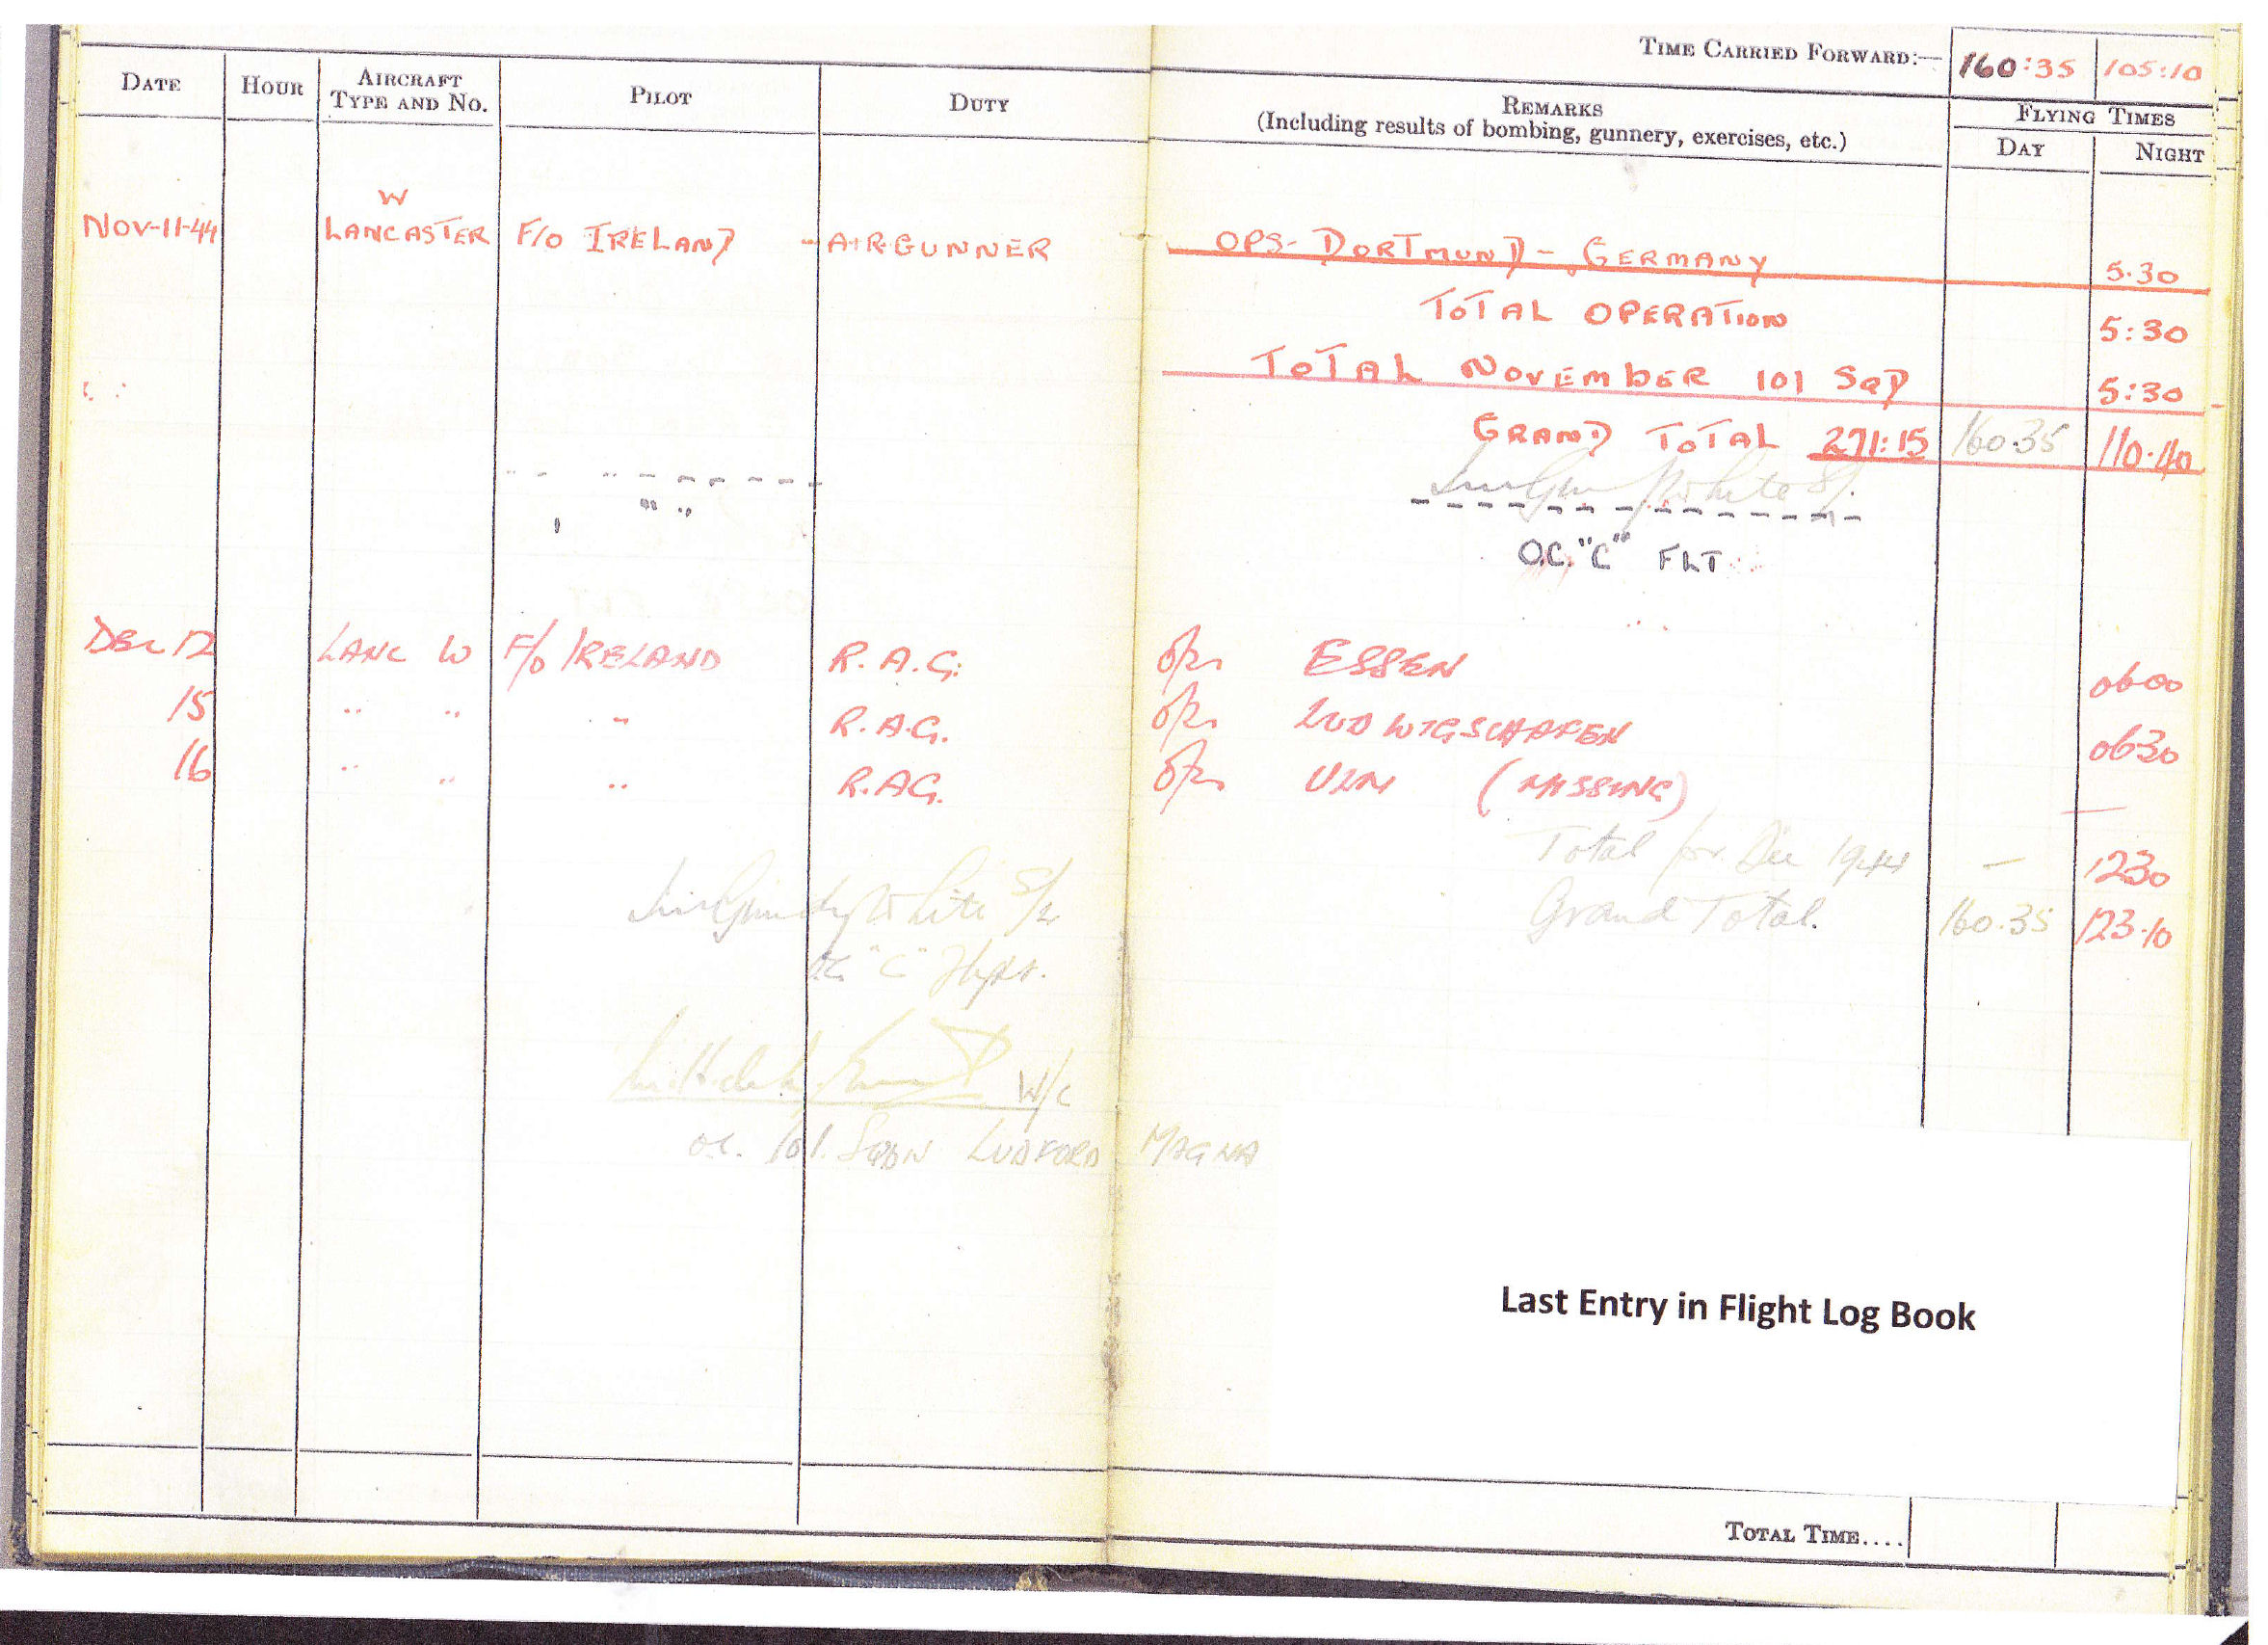 TIME CARRIED FORWARD:— 160:35 105:10
DATE HOUR AIRCRAFT TYPE AND No. PILOT DUTY REMARKS (Including results of bombing, gunnery, exercises, etc.) FLYING TIMES
DAY NIGHT
W
NOV-11-44 LANCASTER F/O IRELAND - AIRGUNNER OPS- DORTMUND - GERMANY 5.30
TOTAL OPERATION 5:30
TOTAL NOVEMBER 101 SQD 5:30
GRAND TOTAL 271:15 160.35 110.40
White S/.
O.C. "C" FLT
DEC 12 LANC W F/O IRELAND R.A.G. Ops ESSEN 0600
15 " " " R.A.G. Ops LUDWIGSCHAFEN 0630
16 " " " R.A.G. Ops ULM (MISSING) —
Total for Dec 1944 — 1230
White S/L Grand Total. 160.35 123.10
O.C. "C" Flght.
W/C
O.C. 101. SQDN LUDFORD MAGNA
Last Entry in Flight Log Book
TOTAL TIME....